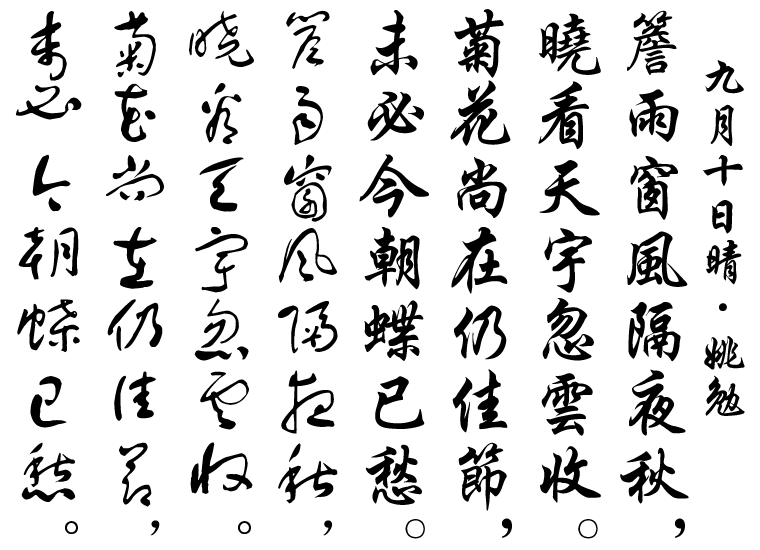 九月十日晴・姚勉
簷雨窗風隔夜秋，
曉看天宇忽雲收。
菊花尚在仍佳節，
未必今朝蝶已愁。
簷雨窗風隔夜秋，
曉看天宇忽雲收。
菊花尚在仍佳節，
未必今朝蝶已愁。